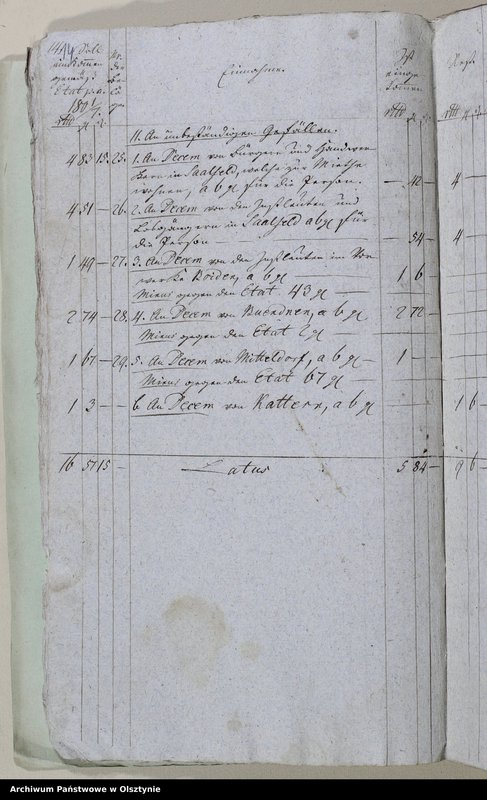 Soll
einkommen
Etat p. a.
Einnahme.
Ist
einge
kommen
Rest
II. An unbeständigen Gefällen.
4 83 15. 25. 1. An Decem von Bürgern und Handwer
kern in Saalfeld, welche zur Miethe
wohnen, a 6 gl für die Person. — 42 — 4 —
4 51 — 26. 2. An Decem von den Instleuten und
Losgängern in Saalfeld a 6 gl für
die Person — 54 — 4 —
1 49 — 27. 3. An Decem von den Instleuten im Vor
werke Koiden, a 6 gl 1 6
Minus gegen den Etat 43 gl —
2 74 — 28. 4. An Decem von Kuerdnen, a 6 gl 2 72 —
Minus gegen den Etat 2 gl
1 67 — 29. 5. An Decem von Mitteldorf, a 6 gl — 1 —
Minus gegen den Etat 67 gl —
1 3 — 6 An Decem von Kattern, a 6 gl — 1 6
16 57 15 — Latus 5 84 — 9 6 —
Archiwum Państwowe w Olsztynie